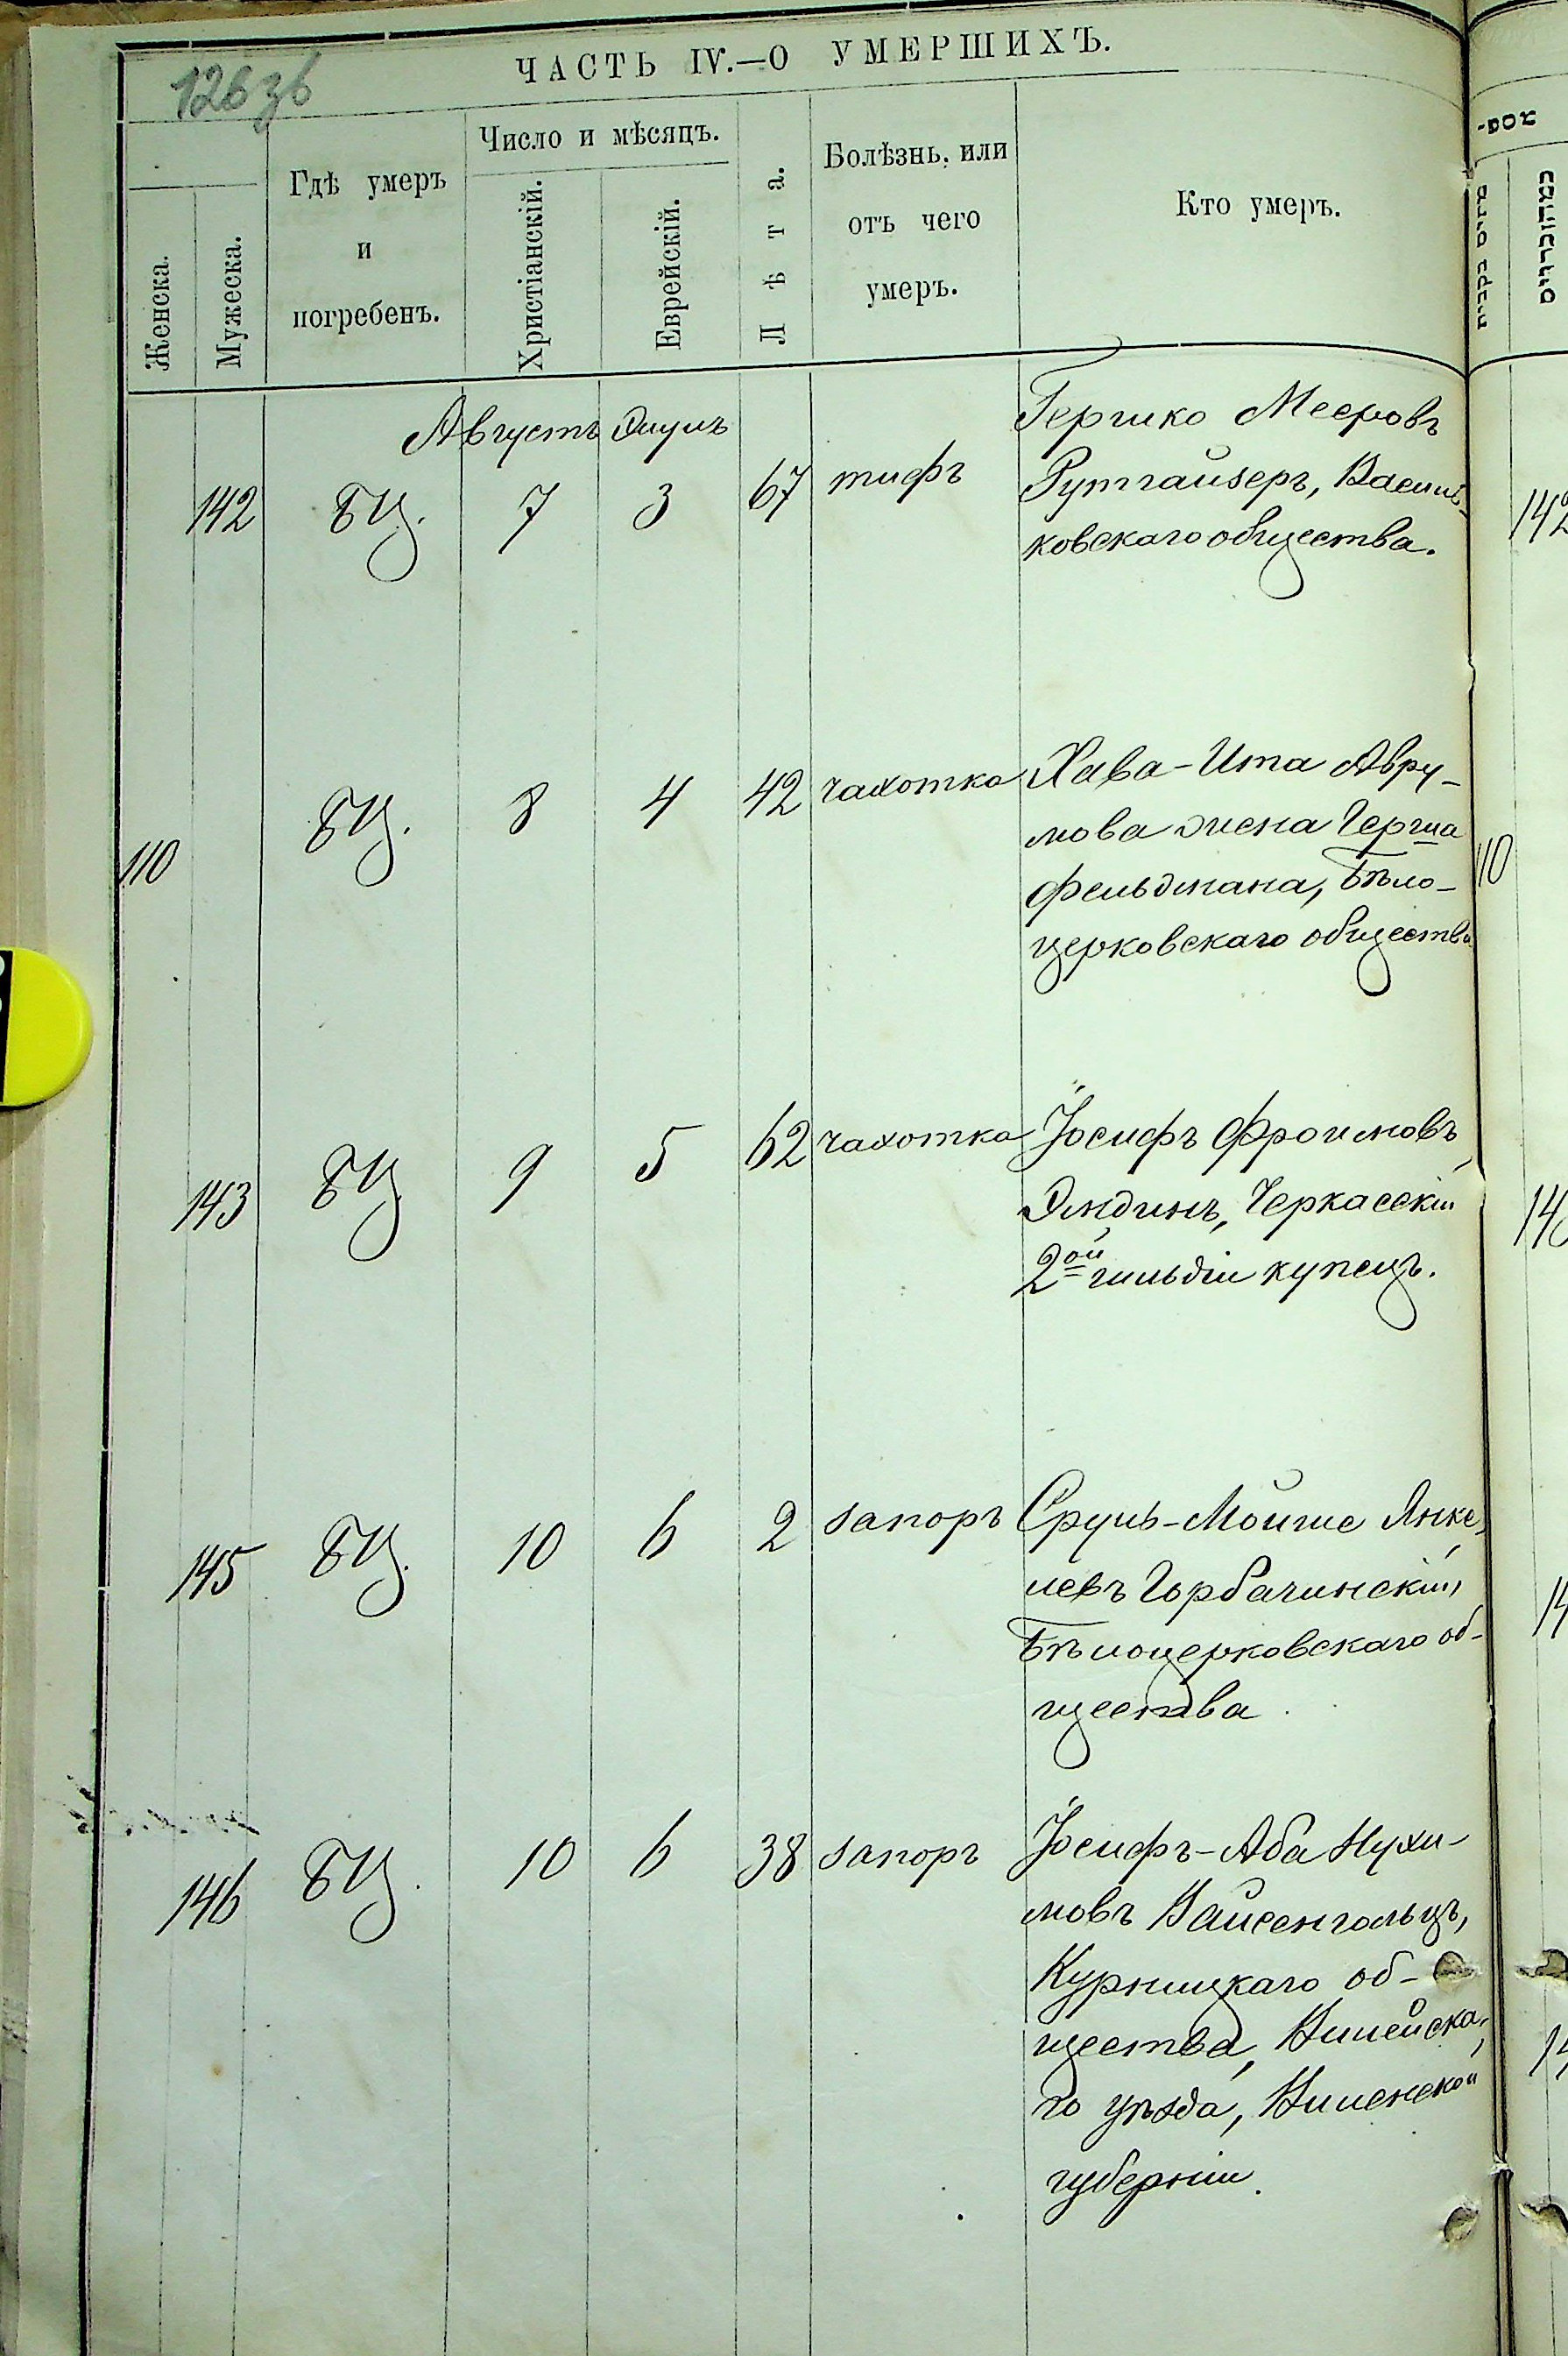 126зв
ЧАСТЬ IV.—О УМЕРШИХЪ.
Женска.
Мужеска.
Гдѣ умеръ
и
погребенъ.
Число и мѣсяцъ.
Христіанскій.
Еврейскій.
Лѣта.
Болѣзнь, или
отъ чего
умеръ.
Кто умеръ.
Августъ Элулъ
142 БЦ. 7 3 67 тифъ
Гершко Мееровъ
Рутгайзеръ, Василь-
ковскаго общества.
142
110 БЦ. 8 4 42 чахотка
Хава-Ита Авру-
мова жена Герша
Фельдмана, Бѣло-
церковскаго общества
110
143 БЦ. 9 5 62 чахотка
Іосифъ Фроимовъ
Эмдинъ, Черкасскій
2ой гильдіи купецъ.
145 БЦ. 10 6 2 запоръ
Сруль-Мойше Янке-
левъ Горбачинскій,
Бѣлоцерковскаго об-
щества
146 БЦ. 10 6 38 запоръ
Іосифъ-Аба Нухи-
мовъ Вайсенгольцъ,
Курницкаго об-
щества, Вилейска-
го уѣзда, Виленской
губерніи.